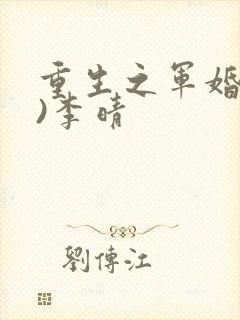 重生之军婚
)李晴
劉傳江